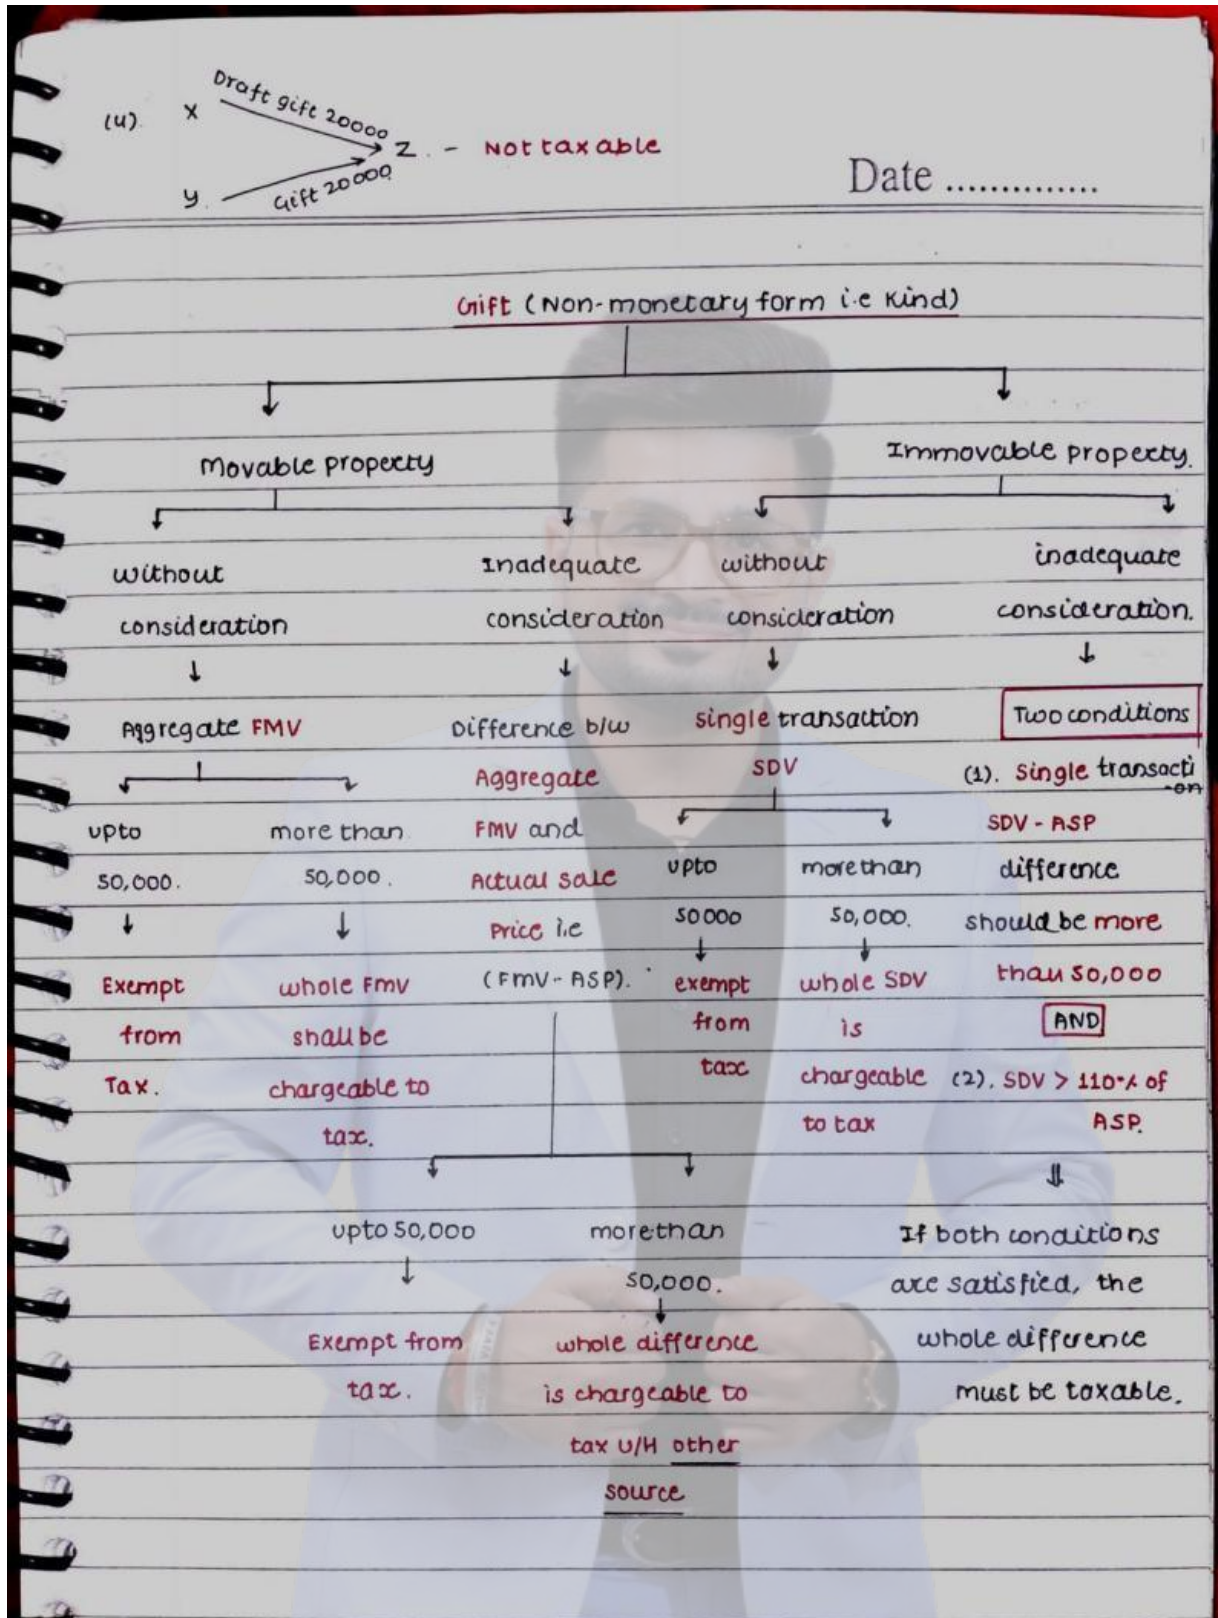 (4). X Draft gift 20000
Z. - Not taxable
y. Gift 20000
Date ..............
Gift (Non-monetary form i.e Kind)
Movable property
Immovable property.
without
consideration
Aggregate FMV
upto
50,000.
Exempt
from
Tax.
more than
50,000.
whole FMV
shall be
chargeable to
tax.
Inadequate
consideration
Difference b/w
Aggregate
FMV and
Actual sale
Price i.e
(FMV - ASP).
upto 50,000
Exempt from
tax.
more than
50,000.
whole difference
is chargeable to
tax U/H other
source
without
consideration
single transaction
SDV
upto
50000
exempt
from
tax
more than
50,000.
whole SDV
is
chargeable
to tax
inadequate
consideration.
Two conditions
(1). Single transacti
-on
SDV - ASP
difference
should be more
than 50,000
AND
(2). SDV > 110% of
ASP.
If both conditions
are satisfied, the
whole difference
must be taxable.